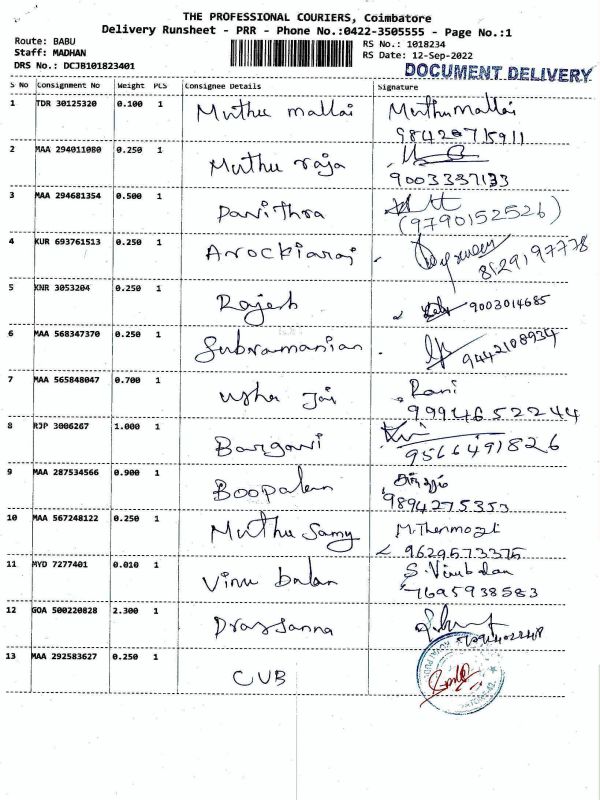 THE PROFESSIONAL COURIERS, Coimbatore
Delivery Runsheet - PRR - Phone No.:0422-3505555 - Page No.:1
Route: BABU
Staff: MADHAN
DRS No.: DCJB101823401
RS No.: 1018234
RS Date: 12-Sep-2022
DOCUMENT DELIVERY
S No Consignment No Weight PCS Consignee Details Signature
1 TDR 30125320 0.100 1 Muthu mallai Muthumallai
2 MAA 294011080 0.250 1 Muthu raja
9003337133
3 MAA 294681354 0.500 1 Pavithra
(9790152526)
4 KUR 693761513 0.250 1 Arockiaraj
8129197778
5 KNR 3053204 0.250 1 Rajesh 9003014685
6 MAA 568347370 0.250 1 Subramanian
9442108934
7 MAA 565848047 0.700 1 Usha Jai Rani
9994652244
8 RJP 3006267 1.000 1 Bargavi
9566491826
9 MAA 287534566 0.900 1 Boopalan
9894275353
10 MAA 567248122 0.250 1 Muthu Samy
9629573375
11 MYD 7277401 0.010 1 Vinu balan S. Vinubalan
7695938583
12 GOA 500220828 2.300 1 Prassanna
13 MAA 292583627 0.250 1 CUB